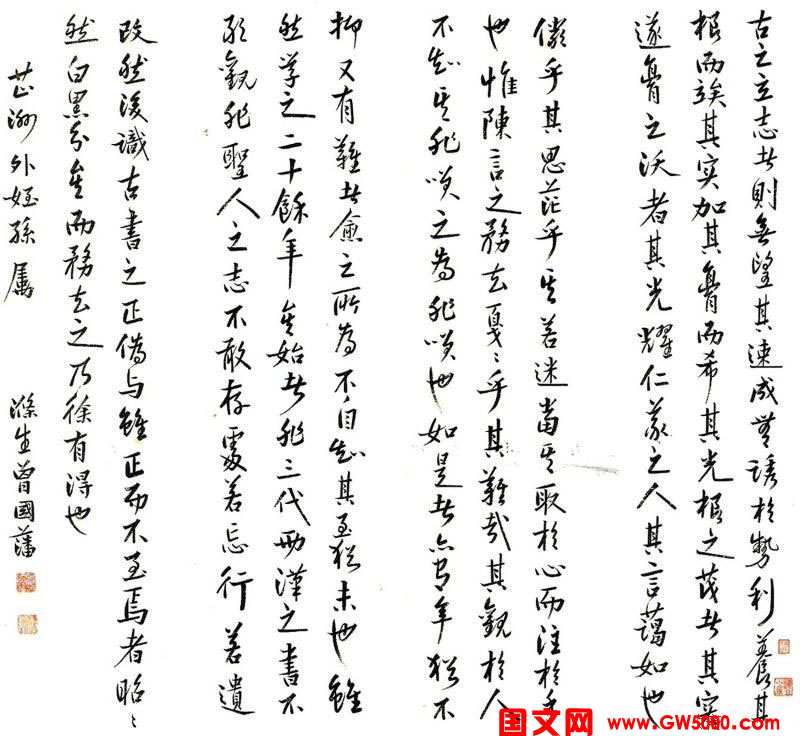 古之立志者則無望其速成無誘於勢利養其
根而竢其实加其膏而希其光根之茂者其实
遂膏之沃者其光耀仁義之人其言藹如也
儼乎其思茫乎其若迷當其取於心而注於手
也惟陳言之務去戛〻乎其難哉其觀於人
不知其非笑之為非笑也如是者亦有年猶不
抑又有難者愈之所為不自知其至猶未也雖
然學之二十餘年矣始者非三代兩漢之書不
敢觀非聖人之志不敢存處若忘行若遺
改然後識古書之正偽与雖正而不至焉者昭〻
然白黑分矣而務去之乃徐有得也
芷洲外姪孫屬 滌生曾國藩
国文网 www.GW5000.com